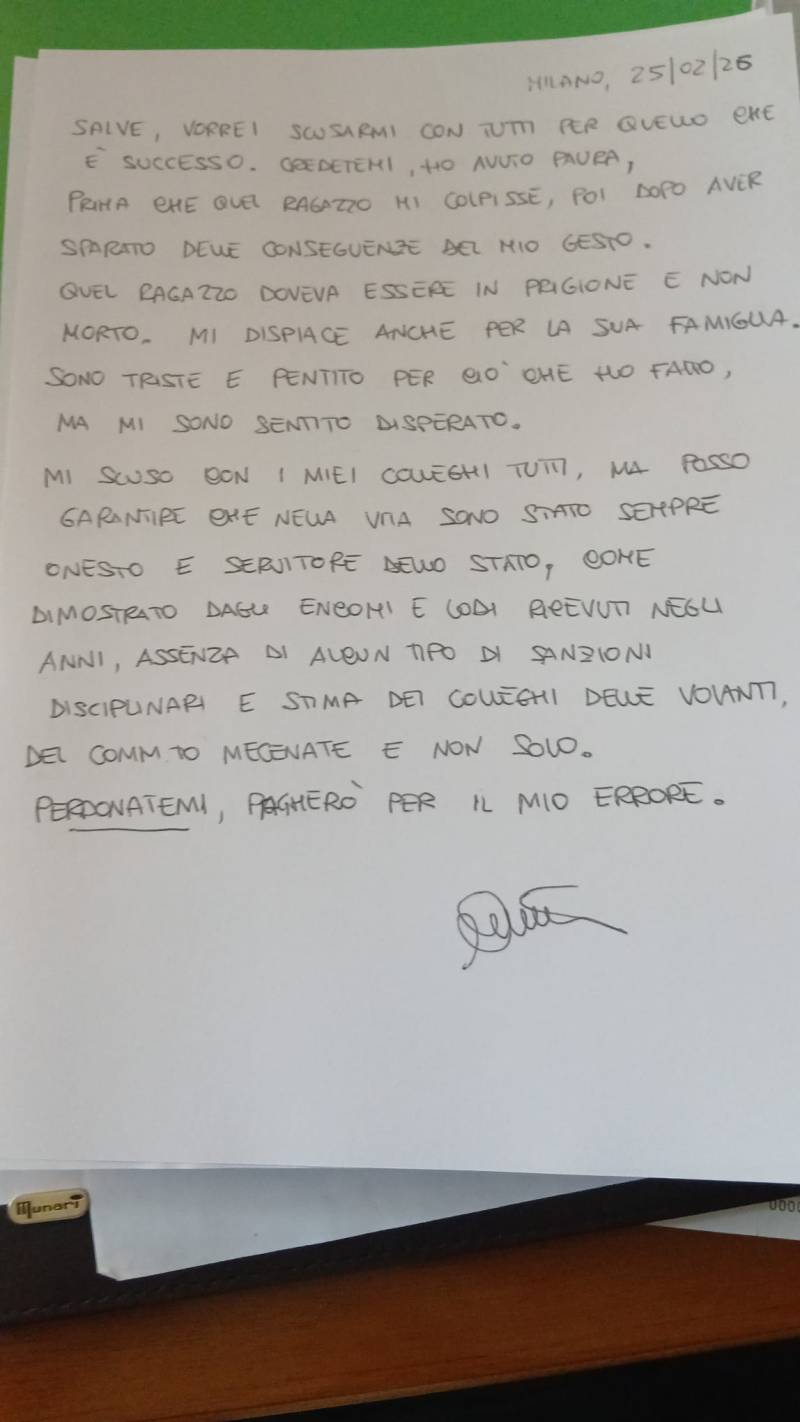 MILANO, 25/02/26
SALVE, VORREI SCUSARMI CON TUTTI PER QUELLO CHE
È SUCCESSO. CREDETEMI, HO AVUTO PAURA,
PRIMA CHE QUEL RAGAZZO MI COLPISSE, POI DOPO AVER
SPARATO DELLE CONSEGUENZE DEL MIO GESTO.
QUEL RAGAZZO DOVEVA ESSERE IN PRIGIONE E NON
MORTO. MI DISPIACE ANCHE PER LA SUA FAMIGLIA.
SONO TRISTE E PENTITO PER CIÒ CHE HO FATTO,
MA MI SONO SENTITO DISPERATO.
MI SCUSO CON I MIEI COLLEGHI TUTTI, MA POSSO
GARANTIRE CHE NELLA VITA SONO STATO SEMPRE
ONESTO E SERVITORE DELLO STATO, COME
DIMOSTRATO DAGLI ENCOMI E LODI RICEVUTI NEGLI
ANNI, ASSENZA DI ALCUN TIPO DI SANZIONI
DISCIPLINARI E STIMA DEI COLLEGHI DELLE VOLANTI,
DEL COMM.TO MECENATE E NON SOLO.
PERDONATEMI, PAGHERÒ PER IL MIO ERRORE.
Munari